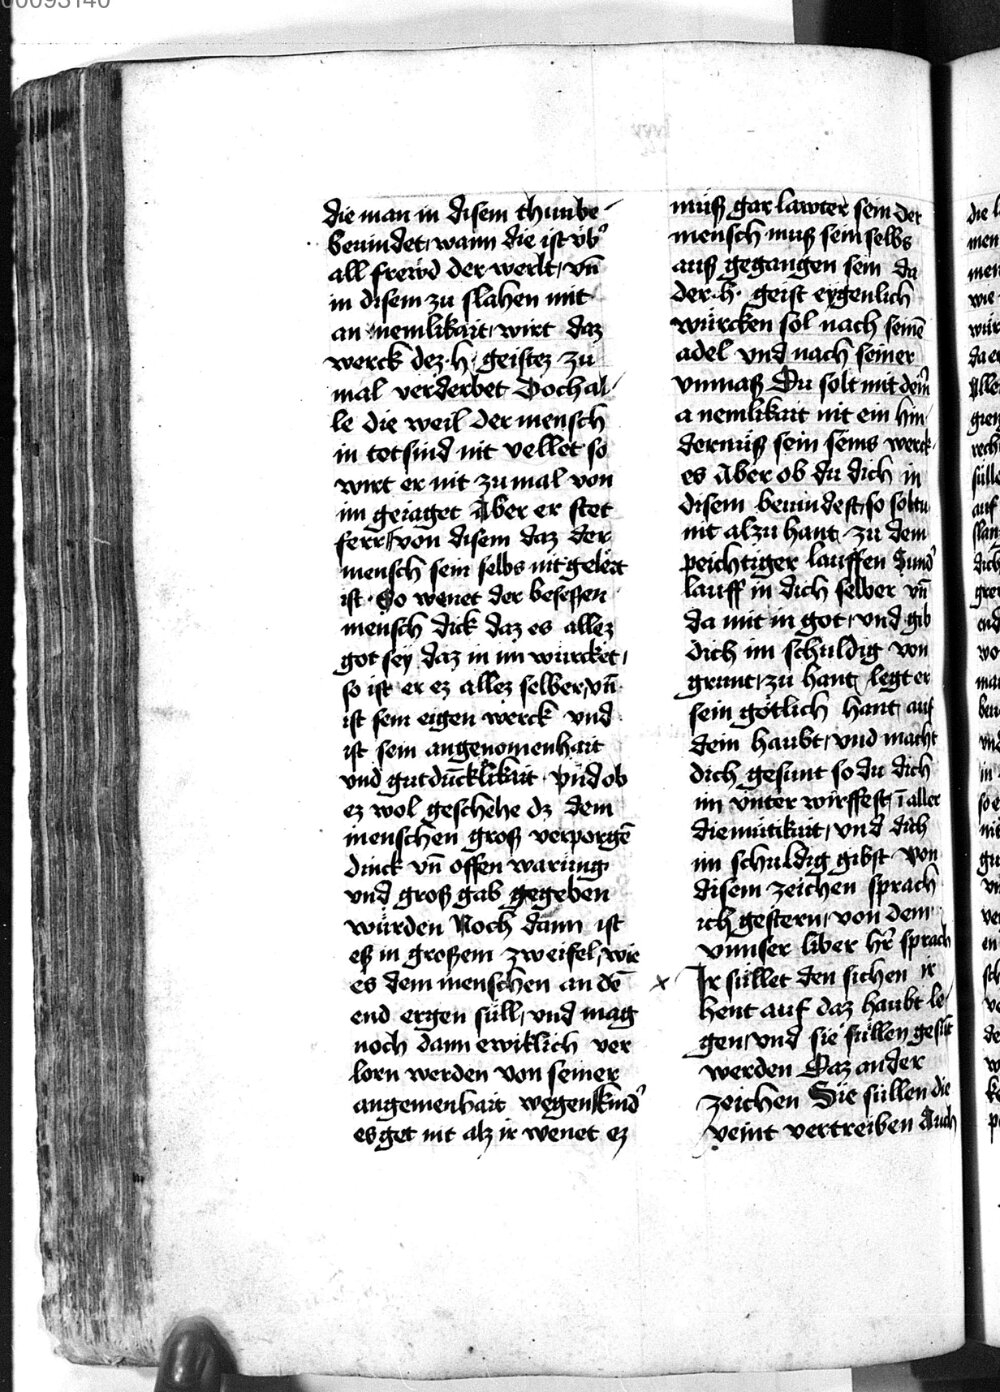 00093140
die man in disem thunbe
beuindet wann die ist vb᾽
all frewd der werlt, vn̄
in disem zu slahen mit
an nemlikait, wirt daz
werck dez .h. geistez zu
mal verderbet Doch al
le die weil der mensch
in totsünd nit vellet so
wirt er nit zu mal von
im geiaget Aber er stet
ferr von disem daz der
mensch sein selbs nit gelert
ist. So wenet der besessen
mensch dick daz es allez
got sey daz in im würcket,
so ist er ez allez selber, vn̄
ist sein eigen werck vnd
ist sein angenomenhait
vnd gutdücklikait vnd ob
ez wol geschehe dz dem
menschen groß verporgē
dinck vn̄ offenwarung
vnd groß gab gegeben
würden Noch dann ist
eß in großem zweifel, wie
es dem menschen an dē
end ergen süll, vnd mag
noch dann ewiklich ver
lorn werden von seiner
angemenhait wegen kind᾽
es get nit alz ir wenet ez
müß gar lawter sein der
mensch muß sein selbs
auß gegangen sein da
der .h. geist eygenlich
würcken sol nach seinē
adel vnd nach seiner
vnmaß Du solt mit deiñ
a nemlikait nit ein hin
dernüß sein seins werck
es Aber ob du dich in
disem beuindest, so soltu
nit alzu hant zu dem
peichtiger lauffen Sund᾽
lauff in dich selber vn̄
da mit in got, vnd gib
dich im schuldig von
grunt, zu hant legt er
sein götlich hant auf
dein haubt, vnd macht
dich gesunt so du dich
im vnter wirffest, ī aller
diemütikait, vnd dich
im schuldig gibst Von
disem zeichen sprach
ich gestern, von dem
vnnser liber hr̄ sprach
x Ir süllet den sichen ir
hent auf daz haubt le
gen, vnd sie süllen gesūt
werden Daz ander
zeichen Sie süllen die
veint vertreiben Auch